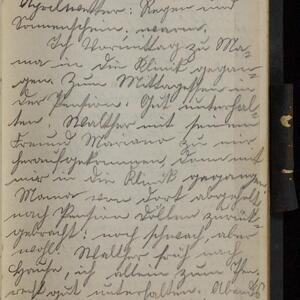 Aprilwetter: Regen und
Sonnenschein, warm.
Ich Vormittag zu Ma-
ma in die Klinik gegan-
gen. Zum Mittagessen in
der Pension. Gut unterhal-
ten. Walther mit seinem
Freund Mariano zu mir
heraufgekommen, dann mit
mir in die Klinik gegangen.
Mama von dort abgeholt,
nach Pension Dillen zurück-
gebracht: noch schwach, aber
wohl. Walther früh nach
Hause, ich allein zum
recht gut unterhalten. Abends